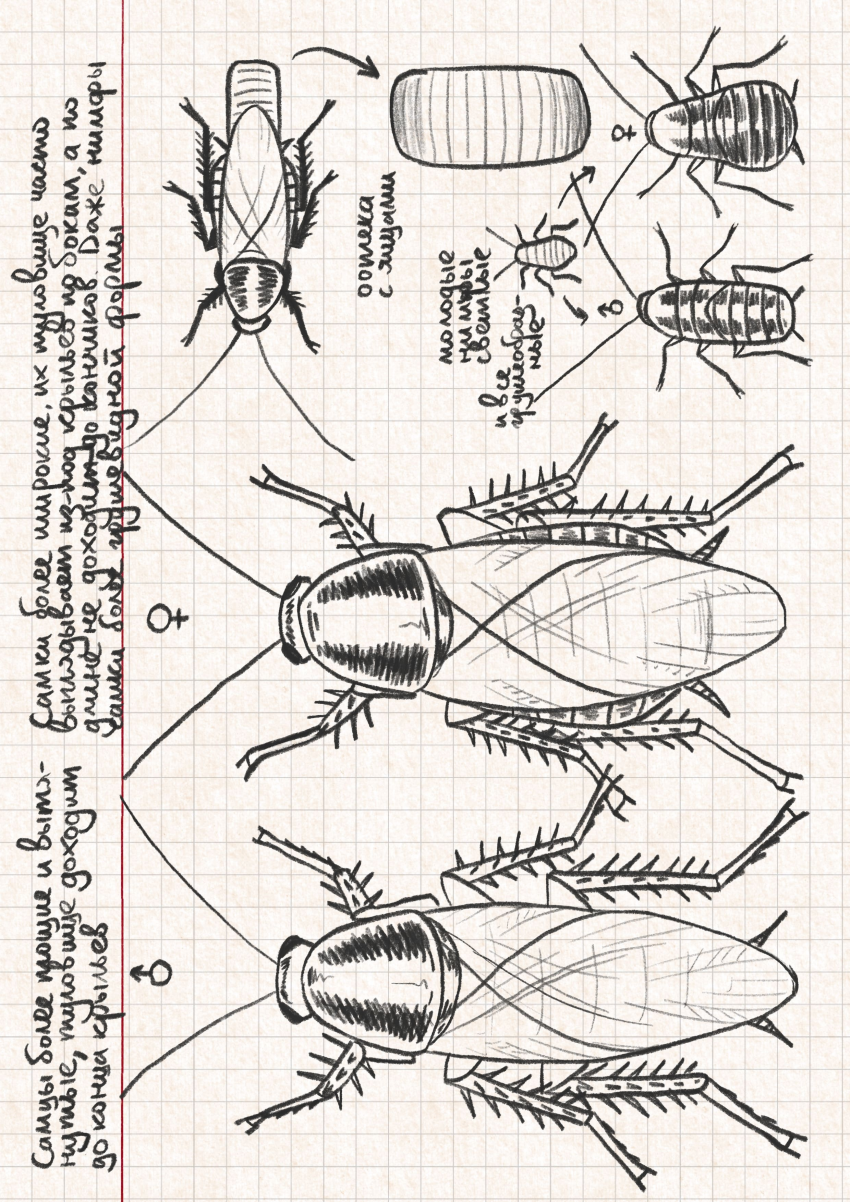 Самцы более тощие и вытя-
нутые, туловище доходит
до конца крыльев
♂
Самки более широкие, их туловище часто
выглядывает из-под крыльев по бокам, а по
длине не доходит до кончиков. Даже нимфы
самки более грушевидной формы
♀
оотека
с яйцами
молодые
нимфы
светлые
и все
грушеобраз-
ные
♂
♀